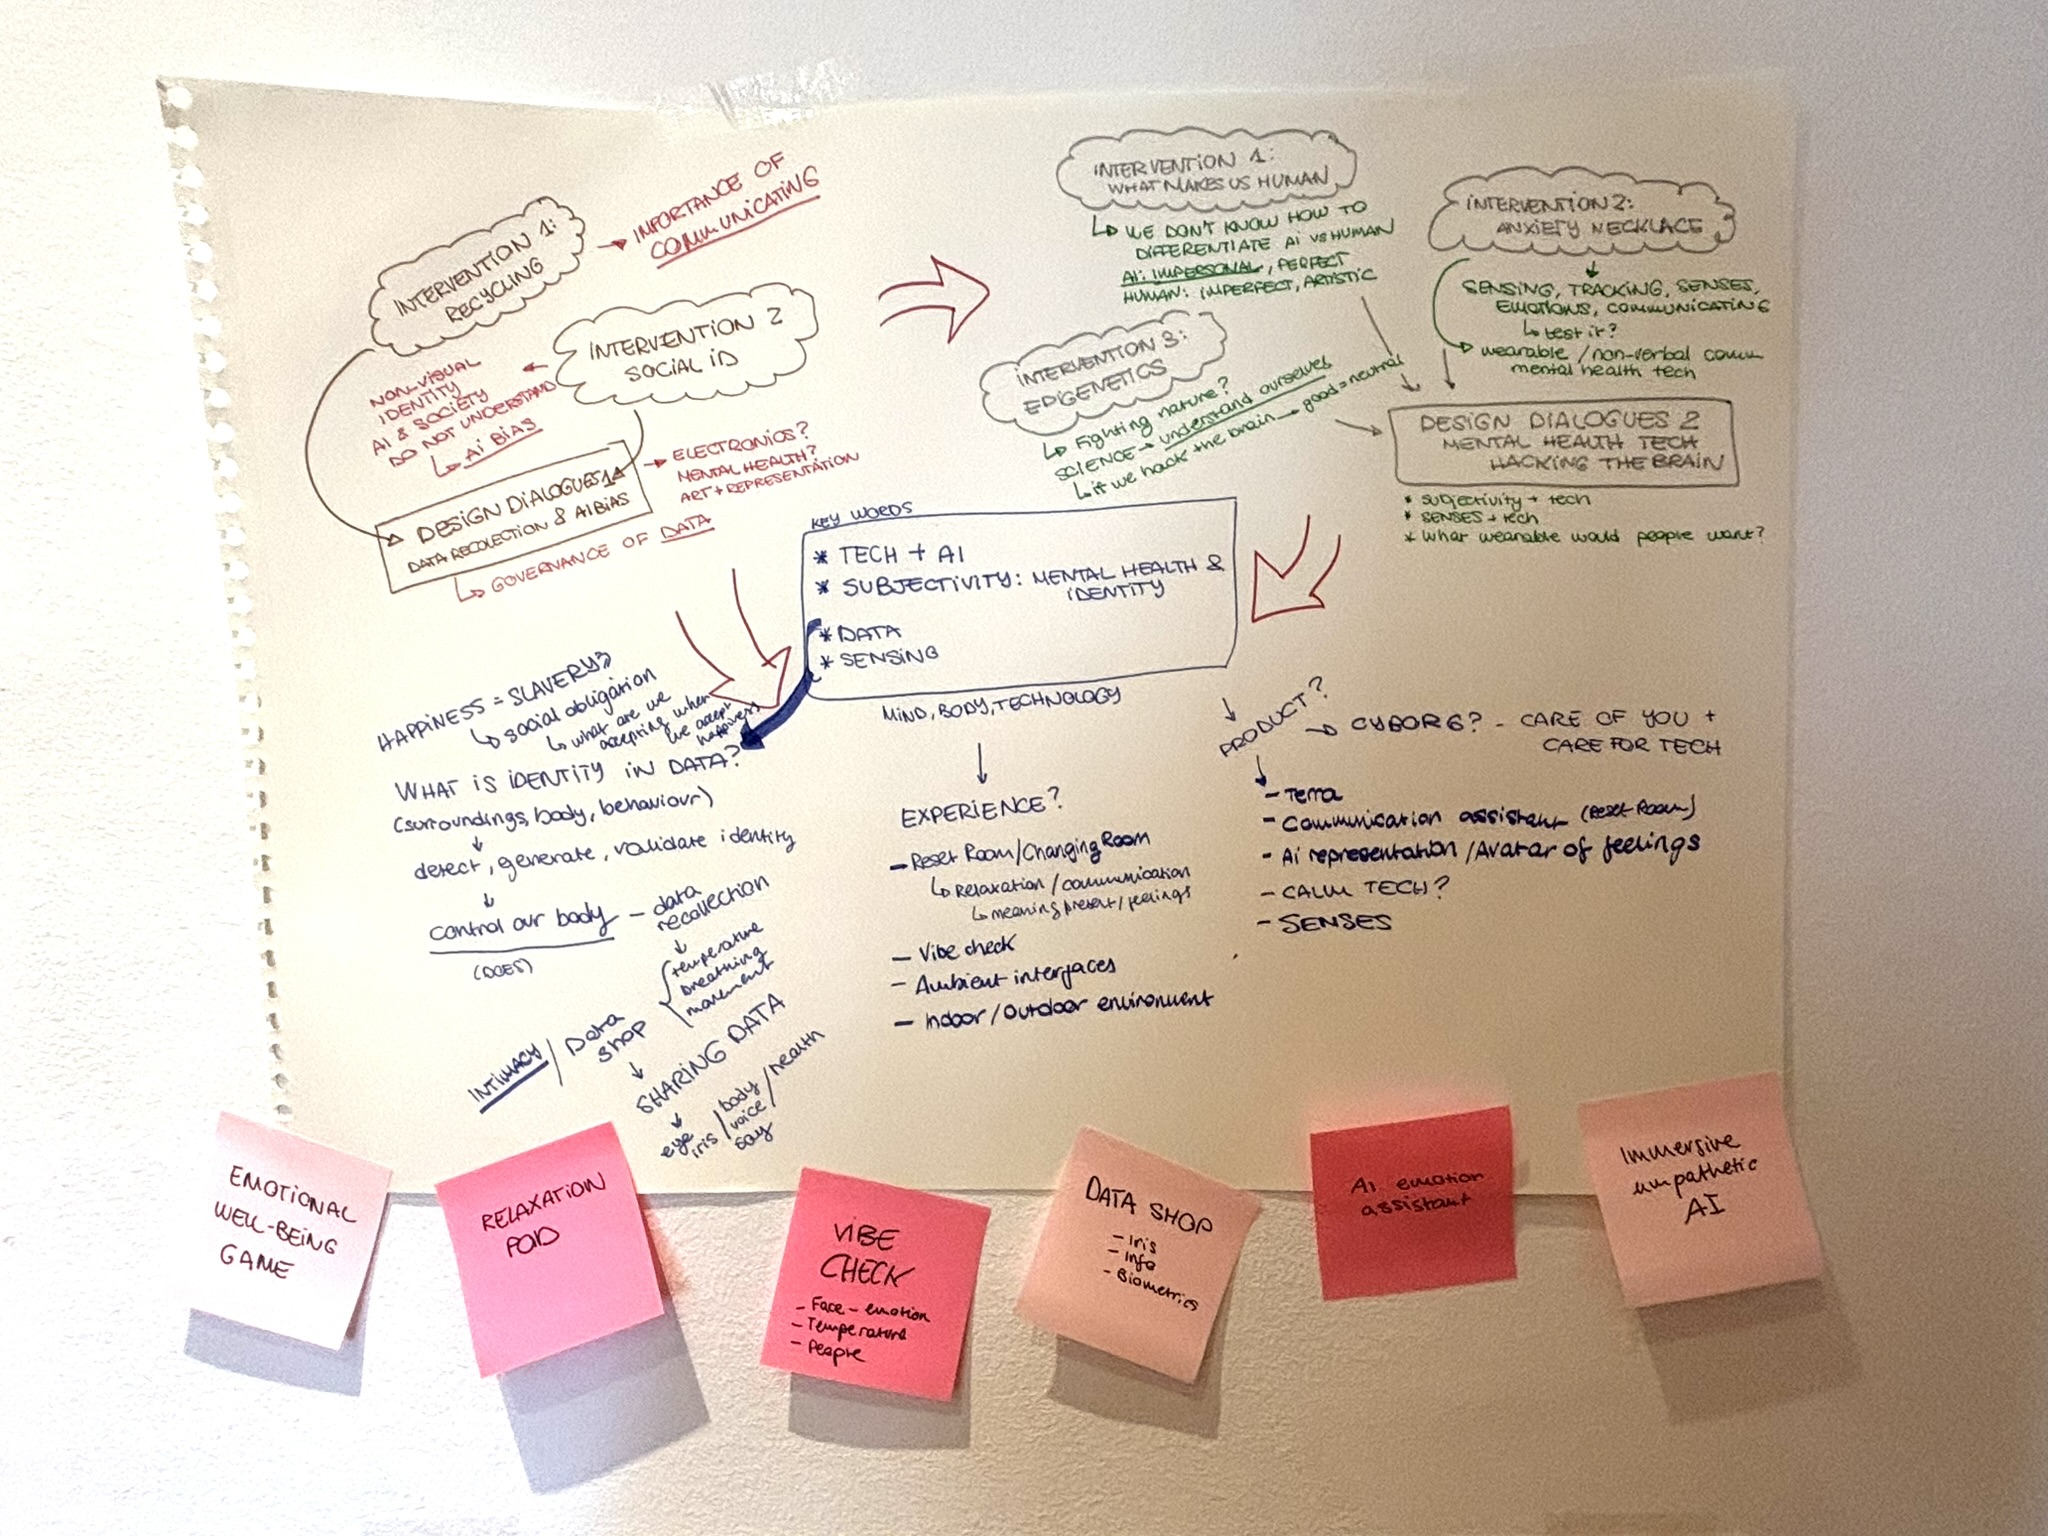 INTERVENTION 1:
RECYCLING
IMPORTANCE OF
COMMUNICATING
INTERVENTION 2
SOCIAL ID
NON-VISUAL
IDENTITY
AI & SOCIETY
DO NOT UNDERSTAND
AI BIAS
DESIGN DIALOGUES 1
DATA RECOLECTION & AI BIAS
ELECTRONICS?
MENTAL HEALTH?
ART + REPRESENTATION
GOVERNANCE OF DATA
INTERVENTION 1:
WHAT MAKES US HUMAN
WE DON'T KNOW HOW TO
DIFFERENTIATE AI VS HUMAN
AI: IMPERSONAL, PERFECT
HUMAN: IMPERFECT, ARTISTIC
INTERVENTION 2:
ANXIETY NECKLACE
SENSING, TRACKING, SENSES,
EMOTIONS, COMMUNICATING
test it?
wearable / non-verbal comm
mental health tech
INTERVENTION 3:
EPIGENETICS
Fighting nature?
SCIENCE → understand ourselves
if we hack the brain → good = neutral
DESIGN DIALOGUES 2
MENTAL HEALTH TECH
HACKING THE BRAIN
* subjectivity + tech
* SENSES + tech
* What wearable would people want?
KEY WORDS
* TECH + AI
* SUBJECTIVITY: MENTAL HEALTH &
IDENTITY
* DATA
* SENSING
MIND, BODY, TECHNOLOGY
HAPPINESS = SLAVERY?
social obligation
what are we
accepting when
we accept
happiness
WHAT IS IDENTITY IN DATA?
(surroundings, body, behaviour)
detect, generate, validate identity
control our body – data
recollection
(DOES)
temperature
breathing
movement
INTIMACY / Data
shop
SHARING DATA
eye
iris / body
voice / health
say
EXPERIENCE?
- Reset Room/Changing Room
Relaxation / communication
meaning present / feelings
- Vibe check
- Ambient interfaces
- Indoor / Outdoor environment
PRODUCT?
CYBORG? - CARE OF YOU +
CARE FOR TECH
- Terra
- Communication assistant (Reset Room)
- AI representation / Avatar of feelings
- CALM TECH?
- SENSES
EMOTIONAL
WELL-BEING
GAME
RELAXATION
POD
VIBE
CHECK
- Face - emotion
- Temperature
- People
DATA SHOP
- Iris
- Info
- Biometrics
AI emotion
assistant
Immersive
empathetic
AI